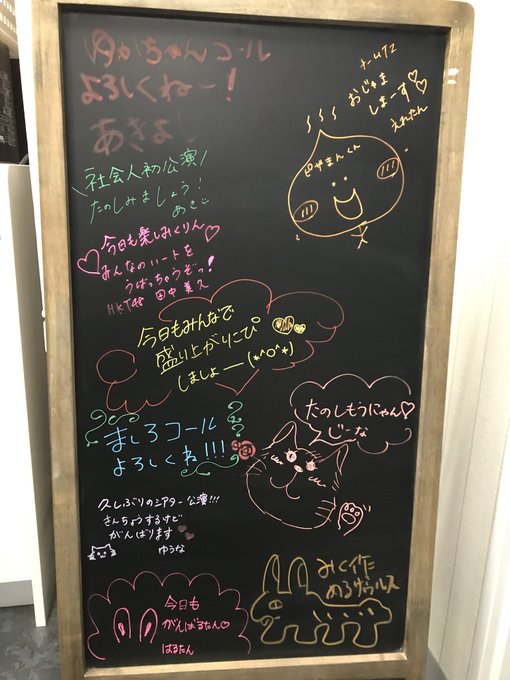 ゆかちゃんコール
よろしくねー!
あきよ
チームTⅡ
おじゃま
しまーす♡♡
えれたん
ぴやまんくん
社会人初公演
たのしみましょう!
あきこ
♡今日も楽しみくりん♡
みんなのハートを
うばっちゃうぞっ!
HKT48 田中美久
今日もみんなで
盛り上がりこぴ
しましょー(*^o^*)
たのしもうにゃん♡
じーな
ましろコール
よろしくね!!!
久しぶりのシアター公演!!!
きんちょうするけど
がんばります
ゆうな
今日も
がんばるたん♡
はるたん
みく作
めるサウルス